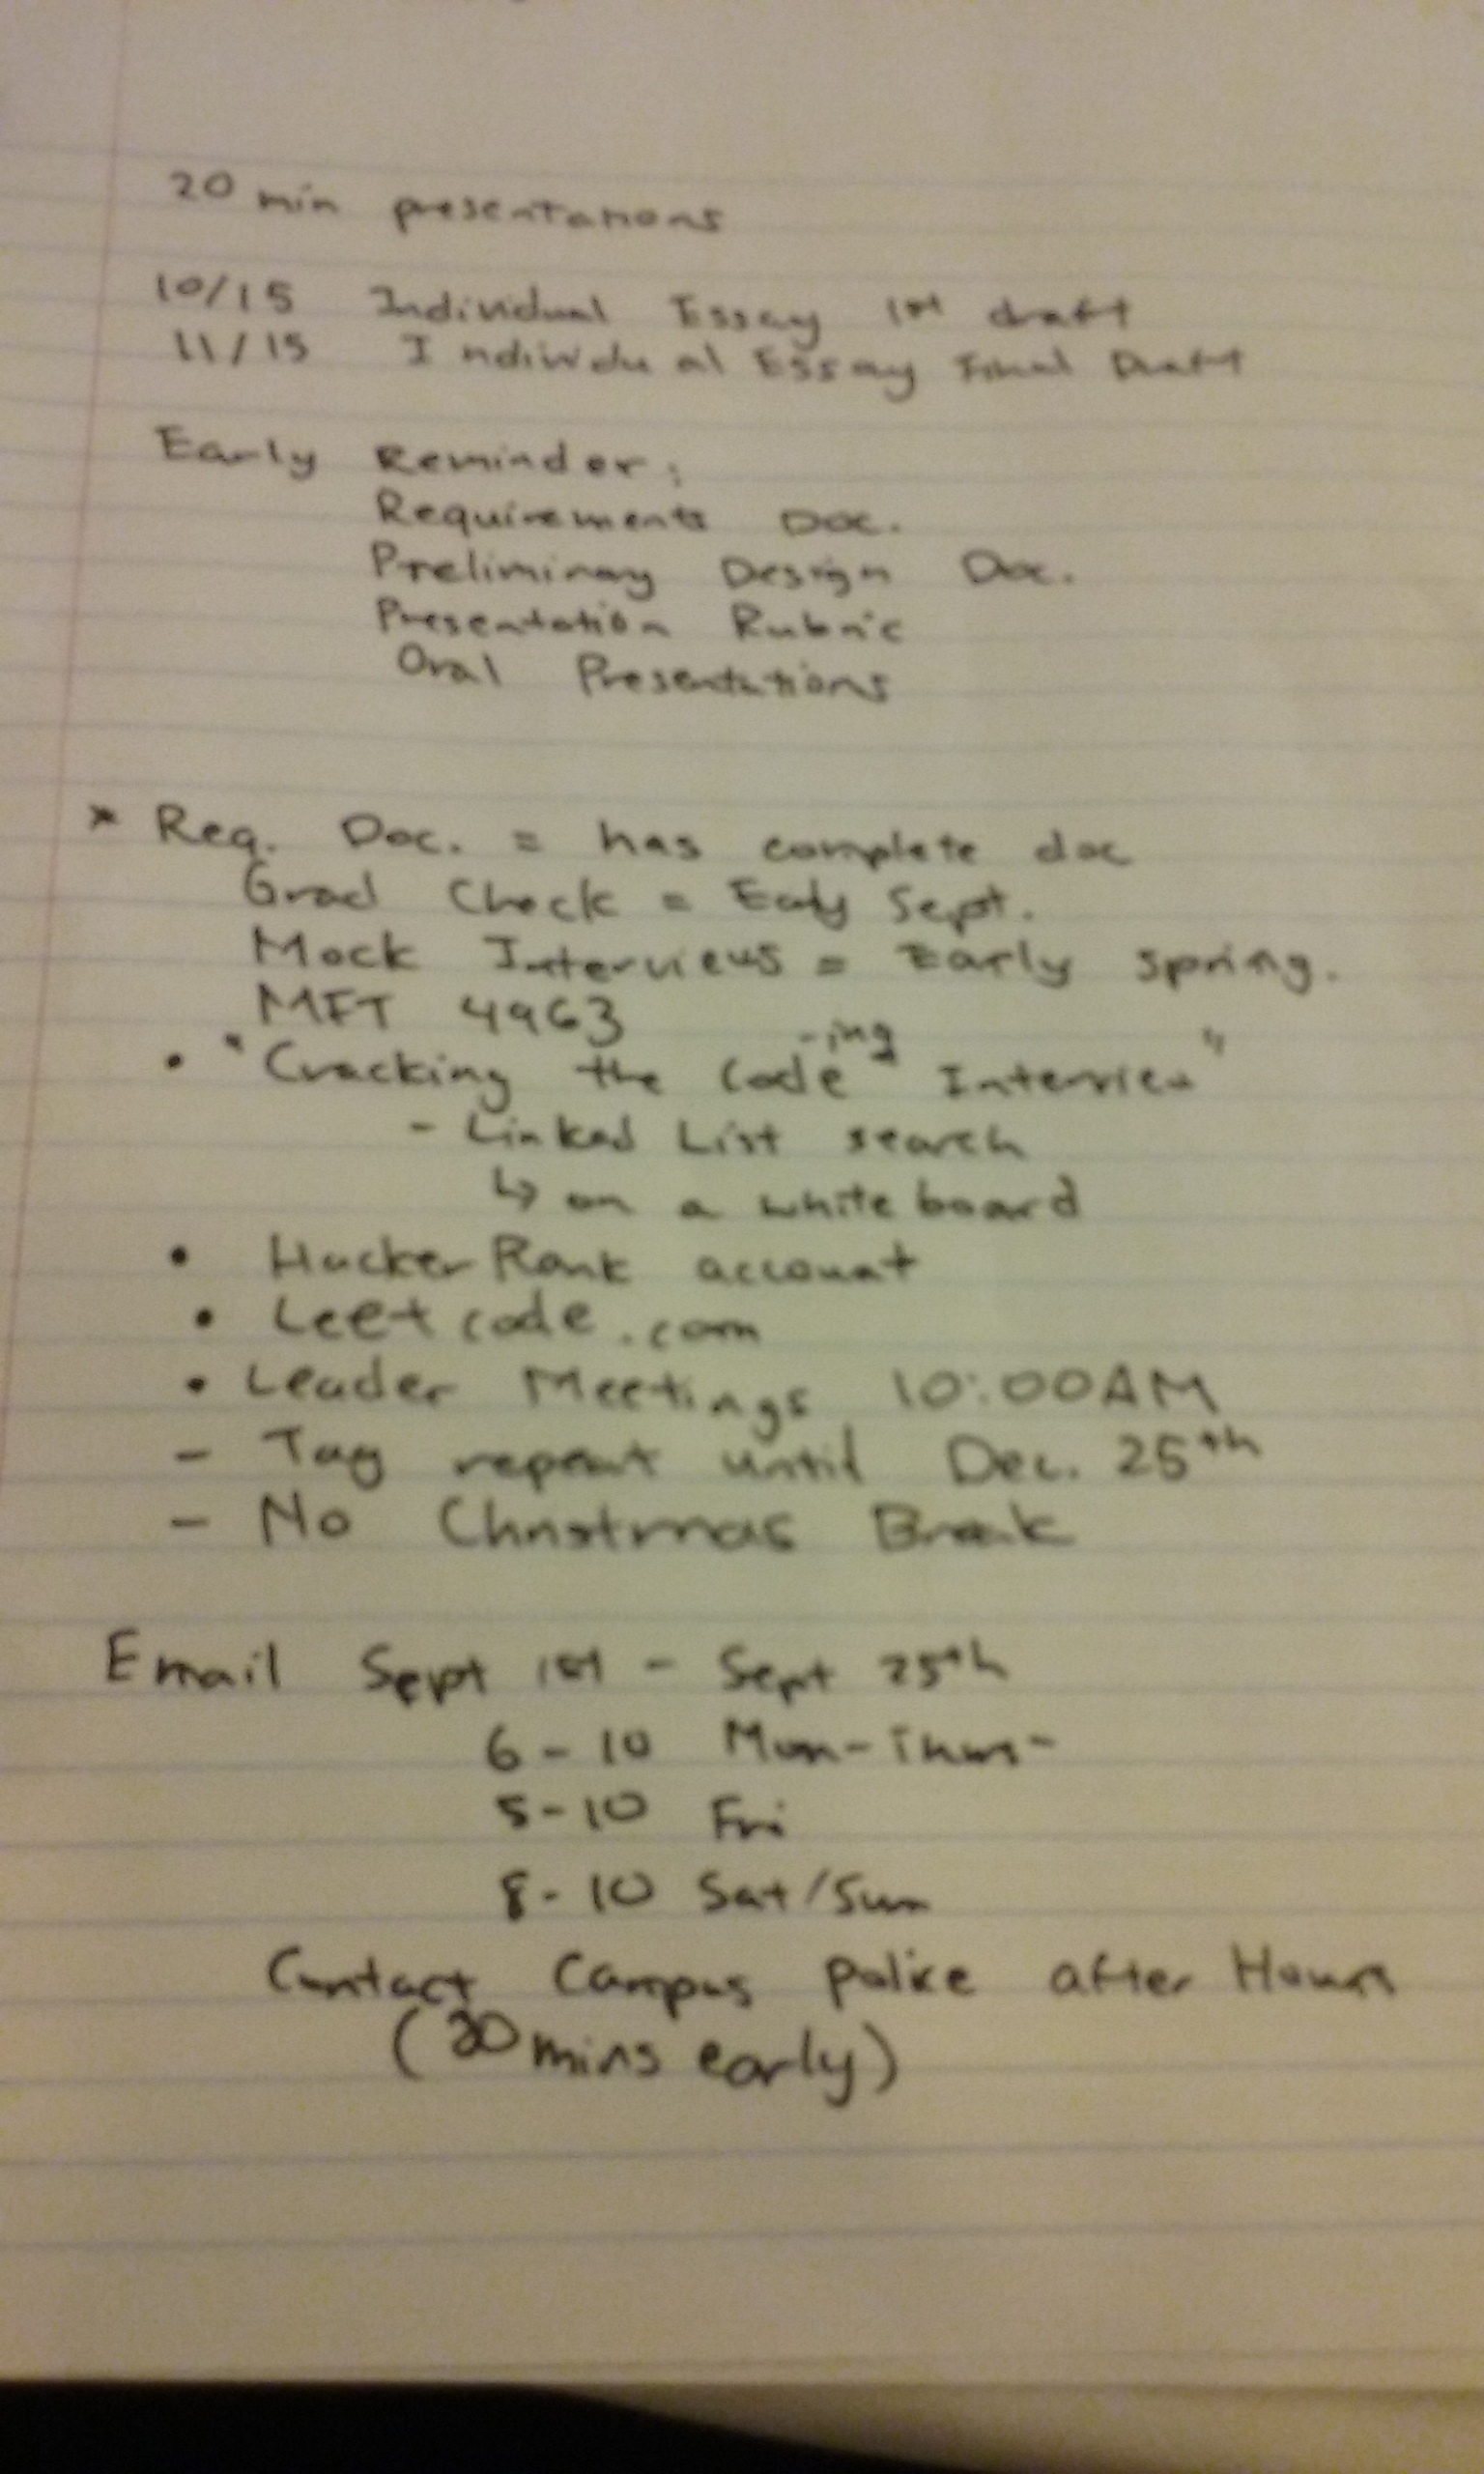 20 min presentations
10/15 Individual Essay 1st draft
11/15 Individual Essay Final Draft
Early Reminder:
Requirements Doc.
Preliminary Design Doc.
Presentation Rubric
Oral Presentations
* Req. Doc. = has complete doc
Grad Check = Early Sept.
Mock Interviews = Early spring.
MFT 4963
-ing
• "Cracking the Code Interview"
- Linked List search
↳ on a white board
• HackerRank account
• Leetcode.com
• Leader Meetings 10:00AM
- Tag repeat until Dec. 25th
- No Christmas Break
Email Sept 1st - Sept 25th
6-10 Mon-Thurs-
5-10 Fri
8-10 Sat/Sun
Contact Campus police after Hours
(30 mins early)